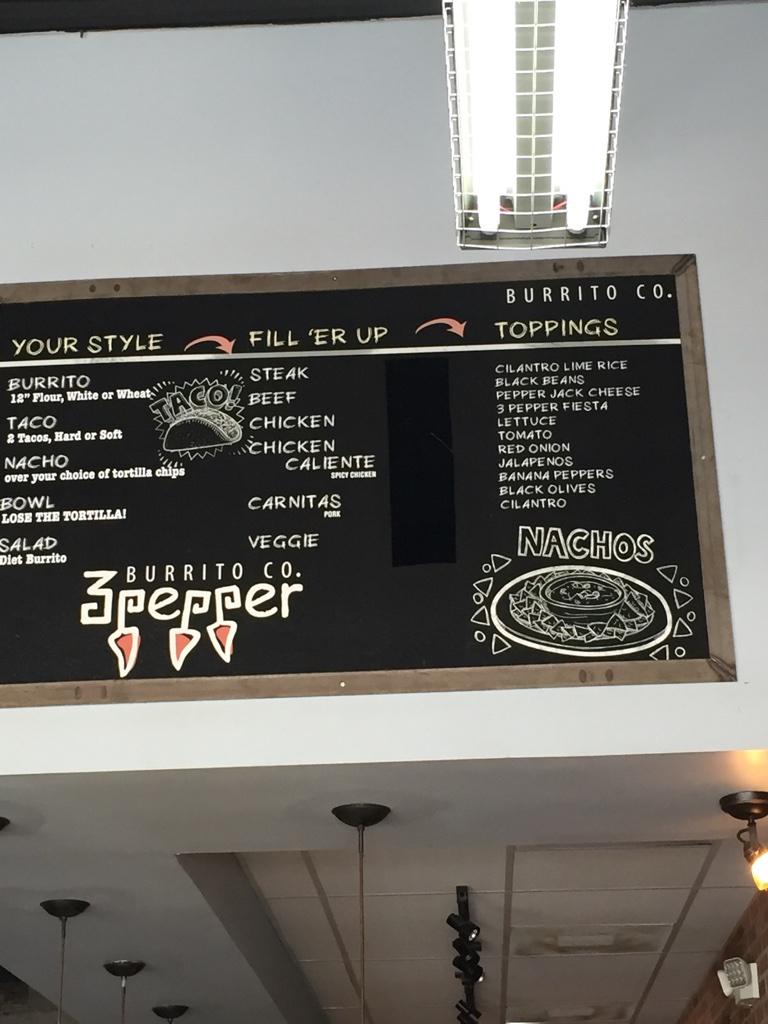 BURRITO CO.
YOUR STYLE
BURRITO
12" Flour, White or Wheat
TACO
2 Tacos, Hard or Soft
NACHO
over your choice of tortilla chips
BOWL
LOSE THE TORTILLA!
SALAD
Diet Burrito
TACO!
FILL 'ER UP
STEAK
BEEF
CHICKEN
CHICKEN
CALIENTE
SPICY CHICKEN
CARNITAS
PORK
VEGGIE
TOPPINGS
CILANTRO LIME RICE
BLACK BEANS
PEPPER JACK CHEESE
3 PEPPER FIESTA
LETTUCE
TOMATO
RED ONION
JALAPENOS
BANANA PEPPERS
BLACK OLIVES
CILANTRO
NACHOS
BURRITO CO.
3pepper